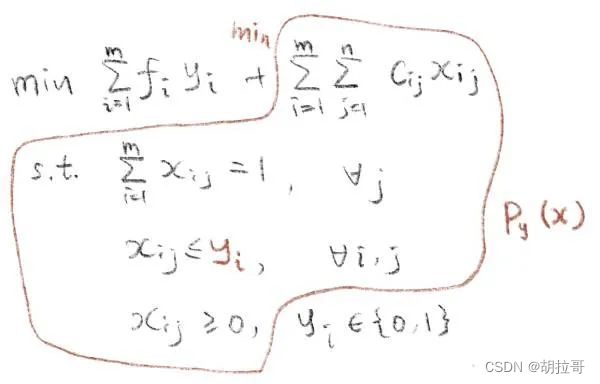 min
min ∑_{i=1}^{m} f_i y_i + ∑_{i=1}^{m} ∑_{j=1}^{n} c_{ij} x_{ij}
s.t. ∑_{i=1}^{m} x_{ij} = 1, ∀j
P_y(x)
x_{ij} ≤ y_i, ∀i,j
x_{ij} ≥ 0, y_i ∈ {0,1}
CSDN @胡拉哥